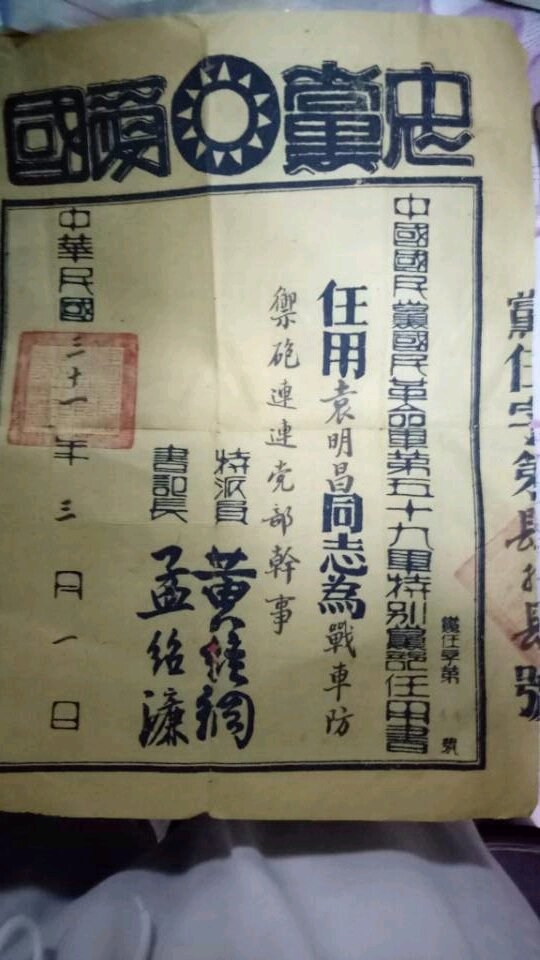 忠黨愛國
黨任字第肆拾肆號
中國國民黨國民革命軍第五十九軍特別黨部任用書
黨任字第 號
任用袁明昌同志為戰車防
禦砲連連党部幹事
特派員 黃維綱
書記長 孟紹濂
中華民國三十一年三月一日